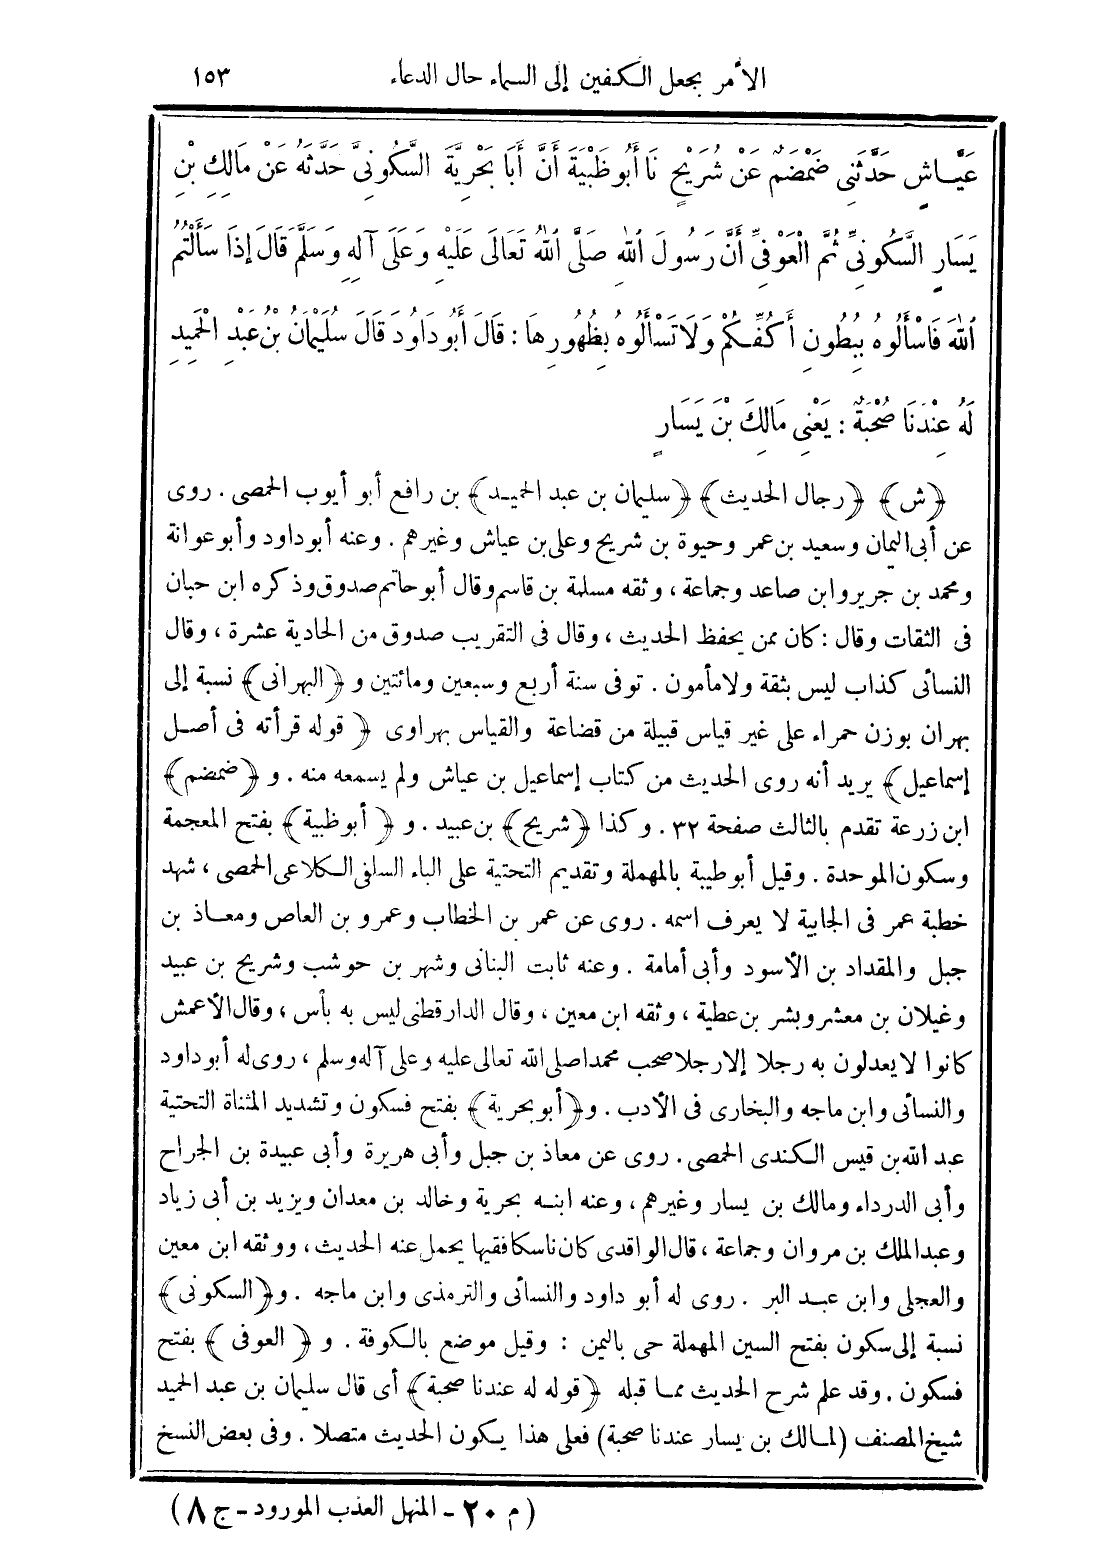 الأمر بجعل الكفين إلى السماء حال الدعاء ١٥٣
عَيَّاشٍ حَدَّثَنِى ضَمْضَمٌ عَنْ شُرَيْحٍ نَا أَبُو ظَبْيَةَ أَنَّ أَبَا بَحْرِيَّةَ السَّكُونِىَّ حَدَّثَهُ عَنْ مَالِكِ بْنِ
يَسَارٍ السَّكُونِىِّ ثُمَّ الْعَوْفِىِّ أَنَّ رَسُولَ اللهِ صَلَّى اللهُ تَعَالَى عَلَيْهِ وَعَلَى آلِهِ وَسَلَّمَ قَالَ إِذَا سَأَلْتُمُ
اللهَ فَاسْأَلُوهُ بِبُطُونِ أَكُفِّكُمْ وَلَا تَسْأَلُوهُ بِظُهُورِهَا : قَالَ أَبُو دَاوُدَ قَالَ سُلَيْمَانُ بْنُ عَبْدِ الْحَمِيدِ
لَهُ عِنْدَنَا صُحْبَةٌ : يَعْنِى مَالِكَ بْنَ يَسَارٍ
﴿ش﴾ ﴿رجال الحديث﴾ ﴿سليمان بن عبد الحميد﴾ بن رافع أبو أيوب الحمصى . روى
عن أبى اليمان وسعيد بن عمر وحيوة بن شريح وعلى بن عياش وغيرهم . وعنه أبو داود وأبو عوانة
ومحمد بن جرير وابن صاعد وجماعة ، وثقه مسلمة بن قاسم وقال أبو حاتم صدوق وذكره ابن حبان
فى الثقات وقال : كان ممن يحفظ الحديث ، وقال فى التقريب صدوق من الحادية عشرة ، وقال
النسائى كذاب ليس بثقة ولا مأمون . توفى سنة أربع وسبعين ومائتين و ﴿البهرانى﴾ نسبة إلى
بهران بوزن حمراء على غير قياس قبيلة من قضاعة والقياس بهراوى ﴿ قوله قرأته فى أصل
إسماعيل﴾ يريد أنه روى الحديث من كتاب إسماعيل بن عياش ولم يسمعه منه . و ﴿ضمضم﴾
ابن زرعة تقدم بالثالث صفحة ٣٢ . وكذا ﴿شريح﴾ بن عبيد . و ﴿ أبو ظبية﴾ بفتح المعجمة
وسكون الموحدة . وقيل أبو طيبة بالمهملة وتقديم التحتية على الباء السلفى الكلاعى الحمصى ، شهد
خطبة عمر فى الجابية لا يعرف اسمه . روى عن عمر بن الخطاب وعمرو بن العاص ومعاذ بن
جبل والمقداد بن الأسود وأبى أمامة . وعنه ثابت البنانى وشهر بن حوشب وشريح بن عبيد
وغيلان بن معشر وبشر بن عطية ، وثقه ابن معين ، وقال الدارقطنى ليس به بأس ، وقال الأعمش
كانوا لا يعدلون به رجلا إلا رجلا صحب محمدا صلى الله تعالى عليه وعلى آله وسلم ، روى له أبو داود
والنسائى وابن ماجه والبخارى فى الأدب . و﴿أبو بحرية﴾ بفتح فسكون وتشديد المثناة التحتية
عبد الله بن قيس الكندى الحمصى . روى عن معاذ بن جبل وأبى هريرة وأبى عبيدة بن الجراح
وأبى الدرداء ومالك بن يسار وغيرهم ، وعنه ابنه بحرية وخالد بن معدان ويزيد بن أبى زياد
وعبد الملك بن مروان وجماعة ، قال الواقدى كان ناسكا فقيها يحمل عنه الحديث ، ووثقه ابن معين
والعجلى وابن عبد البر . روى له أبو داود والنسائى والترمذى وابن ماجه . و﴿السكونى﴾
نسبة إلى سكون بفتح السين المهملة حى باليمن : وقيل موضع بالكوفة . و ﴿ العوفى ﴾ بفتح
فسكون . وقد علم شرح الحديث مما قبله ﴿قوله له عندنا صحبة﴾ أى قال سليمان بن عبد الحميد
شيخ المصنف (لمالك بن يسار عندنا صحبة) فعلى هذا يكون الحديث متصلا . وفى بعض النسخ
( م ٢٠ - المنهل العذب المورود - ج ٨ )